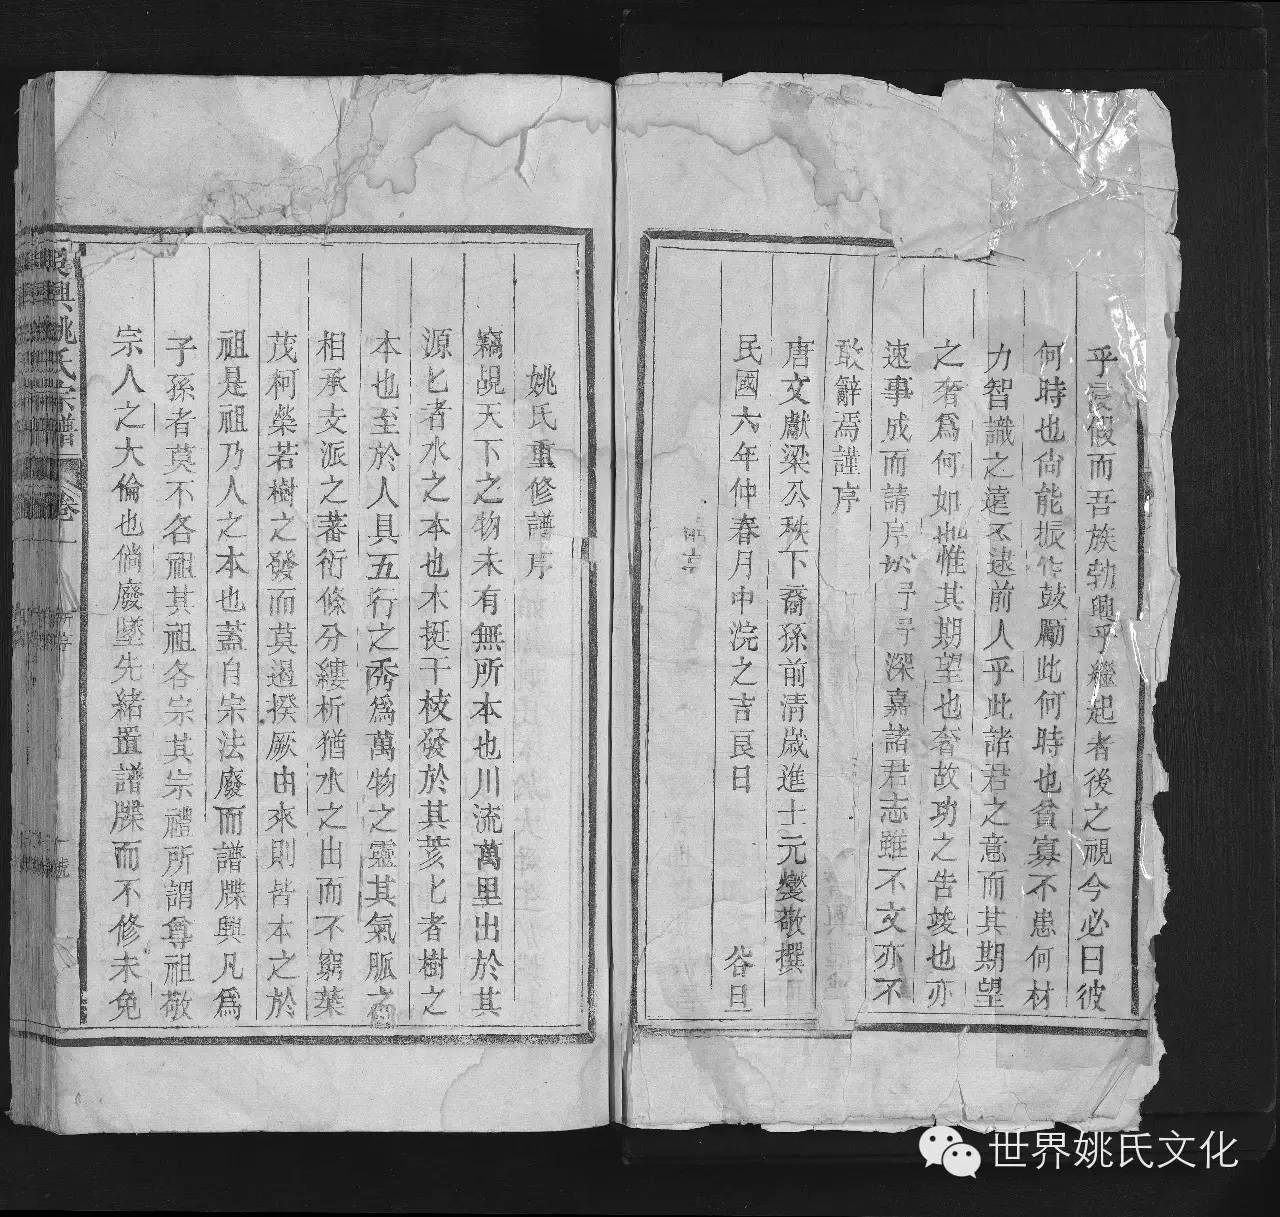 乎寖假而吾族勃興乎繼起者後之視今必曰彼
何時也尙能振作鼓勵此何時也貧寡不患何材
力智識之遠不逮前人乎此諸君之意而其期望
之奢爲何如也惟其期望也奢故功之告竣也亦
速事成而請序於弓弓深嘉諸君志雖不文亦不
敢辭焉謹序
唐文獻梁公秩下裔孫前清歲進士元燮敬撰
民國六年仲春月中浣之吉良日 谷旦
姚氏重修譜序
竊覘天下之物未有無所本也川流萬里出於其
源匕者水之本也木挺千枝發於其荄匕者樹之
本也至於人具五行之秀爲萬物之靈其氣脈之
相承支派之蕃衍條分縷析猶水之出而不窮葉
茂柯榮若樹之發而莫遏揆厥由來則皆本之於
祖是祖乃人之本也蓋自宗法廢而譜牒興凡爲
子孫者莫不各祖其祖各宗其宗禮所謂尊祖敬
宗人之大倫也倘廢墜先緒置譜牒而不修未免
吳興姚氏宗譜 卷一
世界姚氏文化